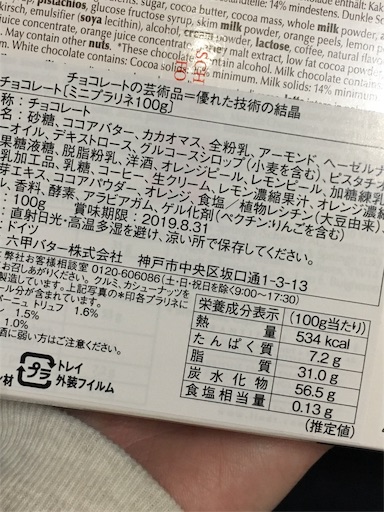 ents: sugar, cocoa butter, cocoa mass, whole milk powder,
pistachios, glucose fructose syrup, skim milk powder,
kirsch, emulsifier (soya lecithin), alcohol, cream powder, lactose, coffee, natural flavo
juice concentrate, orange juice concentrate, barley malt extract, low fat cocoa powd
May contain other nuts. *These chocolates contain alcohol. Milk chocolate contains
n. White chocolate contains: Cocoa solids % minimum. Milk solids: 14% minimum.
チョコレートの芸術品=優れた技術の結晶
チョコレート[ミニプラリネ100g]
称:チョコレート
名:砂糖、ココアバター、カカオマス、全粉乳、アーモンド、ヘーゼルナ
ーオイル、デキストロース、グルコースシロップ(小麦を含む)、ピスタチ
果糖液糖、脱脂粉乳、洋酒、オレンジピール、レモンピール、加糖練乳
乳加工品、乳糖、コーヒー、生クリーム、レモン濃縮果汁、オレンジ濃縮
芽エキス、ココアパウダー、オレンジ、食塩/植物レシチン(大豆由来)、
ル、香料、酵素、アラビアガム、ゲル化剤(ペクチン:りんごを含む)
:100g 賞味期限:2019.8.31
:直射日光・高温多湿を避け、涼い所で保存してください。
ドイツ
六甲バター株式会社 神戸市中央区坂口通1-3-13
弊社お客様相談室 0120-606086(土・日・祝日を除く9:00~17:30)
お召しあがりください。クルミ、カシューナッツを
製造しています。上記写真の*印各プラリネに
ール分が含まれています。
ペーニュ トリュフ 1.6%
1.5%
1.0%
酒に弱い方はご注意ください。
プラ
トレイ
外装フイルム
ン材
栄養成分表示 (100g当たり)
熱量 534 kcal
たんぱく質 7.2 g
脂質 31.0 g
炭水化物 56.5 g
食塩相当量 0.13 g
(推定値)